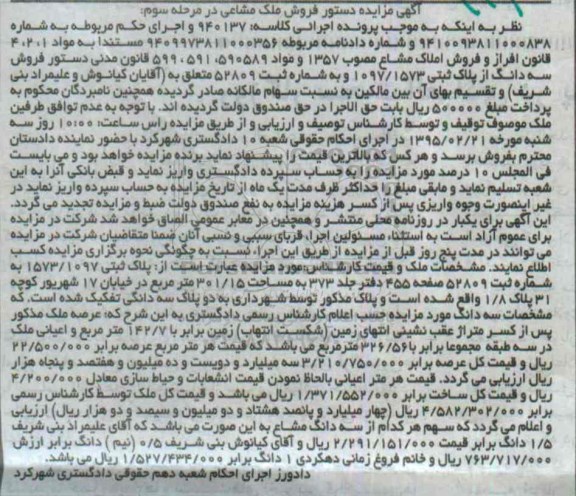 آگهی مزایده دستور فروش ملک مشاعی در مرحله سوم:
نظر به اینکه به موجب پرونده اجرائی کلاسه: ۹۴۰۱۳۷ و اجرای حکم مربوطه به شماره
۹۴۱۰۰۹۳۸۱۱۰۰۰۸۳۸ و شماره دادنامه مربوطه ۹۴۰۹۹۷۳۸۱۱۰۰۰۳۵۶ مستندا به مواد ۱،۲،۴
قانون افراز و فروش املاک مشاع مصوب ۱۳۵۷ و مواد ۵۹۹،۵۹۱،۵۹۰،۵۸۹ قانون مدنی دستور فروش
سه دانگ از پلاک ثبتی ۱۰۹۷/۱۵۷۳ و به شماره ثبت ۵۲۸۰۹ متعلق به (آقایان کیانوش و علیمراد بنی
شریف) و تقسیم بهای آن بین مالکین به نسبت سهام مالکانه صادر گردیده همچنین نامبردگان محکوم به
پرداخت مبلغ ۵۰۰۰۰۰ ریال بابت حق الاجرا در حق صندوق دولت گردیده اند. با توجه به عدم توافق طرفین
ملک موصوف توقیف و توسط کارشناس توصیف و ارزیابی و از طریق مزایده راس ساعت: ۱۰:۰۰ روز سه
شنبه مورخه ۱۳۹۵/۰۲/۲۱ در اجرای احکام حقوقی شعبه ۱۰ دادگستری شهرکرد با حضور نماینده دادستان
محترم بفروش برسد و هر کس که بالاترین قیمت را پیشنهاد نماید برنده مزایده خواهد بود و می بایست
فی المجلس ۱۰ درصد مورد مزایده را به حساب سپرده دادگستری واریز نماید و قبض بانکی آنرا به این
شعبه تسلیم نماید و مابقی مبلغ را حداکثر ظرف مدت یک ماه از تاریخ مزایده به حساب سپرده واریز نماید در
غیر اینصورت وجوه واریزی پس از کسر هزینه مزایده به نفع صندوق دولت ضبط و مزایده تجدید می گردد.
این آگهی برای یکبار در روزنامه محلی منتشر و همچنین در معابر عمومی الصاق خواهد شد شرکت در مزایده
برای عموم آزاد است به استثناء مسئولین اجرا، قربای سببی و نسبی آنان ضمنا متقاضیان شرکت در مزایده
می توانند در مدت پنج روز قبل از مزایده از طریق این اجرا، نسبت به چگونگی نحوه برگزاری مزایده کسب
اطلاع نمایند. مشخصات ملک و قیمت کارشناس مورد مزایده عبارت است از: پلاک ثبتی ۱۵۷۳/۱۰۹۷ به
شماره ثبت ۵۲۸۰۹ صفحه ۴۵۵ دفتر جلد ۳۷۳ به مساحت ۳۰۱/۱۵ متر مربع در خیابان ۱۷ شهریور کوچه
۳۱ پلاک ۱/۸ واقع شده است و پلاک مذکور توسط شهرداری به دو پلاک سه دانگی تفکیک شده است. که
مشخصات سه دانگ مورد مزایده حسب اعلام کارشناس رسمی دادگستری به این شرح که؛ عرصه ملک مذکور
پس از کسر متراژ عقب نشینی انتهای زمین (شکست انتهاب) زمین برابر با ۱۴۲/۷ متر مربع و اعیانی ملک
در سه طبقه مجموعا برابر با ۳۲۶/۵۶ مترمربع می باشد که قیمت هر متر مربع عرصه برابر ۲۲/۵۰۰/۰۰۰
ریال و قیمت کل عرصه برابر ۳/۲۱۰/۷۵۰/۰۰۰ سه میلیارد و دویست و ده میلیون و هفتصد و پنجاه هزار
ریال ارزیابی می گردد. قیمت هر متر اعیانی بالحاظ نمودن قیمت انشعابات و حیاط سازی معادل ۴/۲۰۰/۰۰۰
ریال و قیمت کل ساخت برابر ۱/۳۷۱/۵۵۲/۰۰۰ ریال می باشد و قیمت کل ملک توسط کارشناس رسمی
برابر ۴/۵۸۲/۳۰۲/۰۰۰ ریال (چهار میلیارد و پانصد هشتاد و دو میلیون و سیصد و دو هزار ریال) ارزیابی
و اعلام می گردد که سهم هر کدام از سه دانگ مشاع به این صورت می باشد که آقای علیمراد بنی شریف
۱/۵ دانگ برابر قیمت ۲/۲۹۱/۱۵۱/۰۰۰ ریال و آقای کیانوش بنی شریف ۰/۵ (نیم) دانگ برابر ارزش
۷۶۳/۷۱۷/۰۰۰ ریال و خانم فروغ زمانی دهکردی ۱ دانگ برابر ۱/۵۲۷/۴۳۴/۰۰۰ ریال می باشد.
دادورز اجرای احکام شعبه دهم حقوقی دادگستری شهرکرد